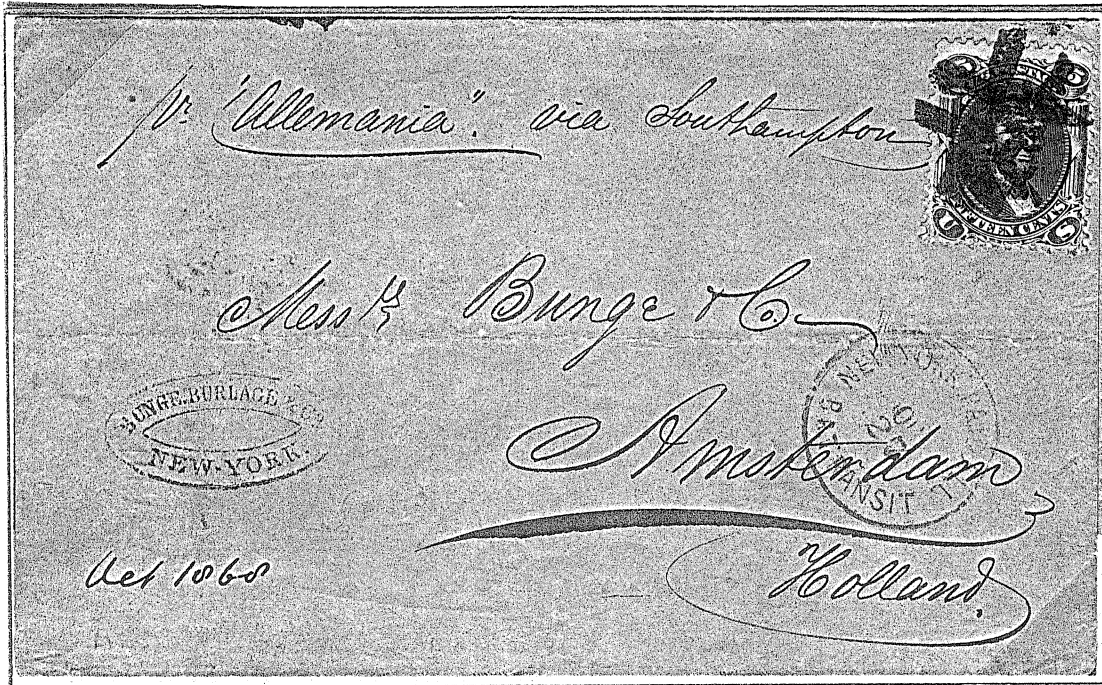 pr. "Allemania". via Southampton
FIFTEEN CENTS
U S
Messrs Bunge & Co.
BUNGE, BURLAGE & Co.
NEW-YORK.
NEW YORK
PAID TRANSIT
OCT
Amsterdam
Holland,
Oct 1868